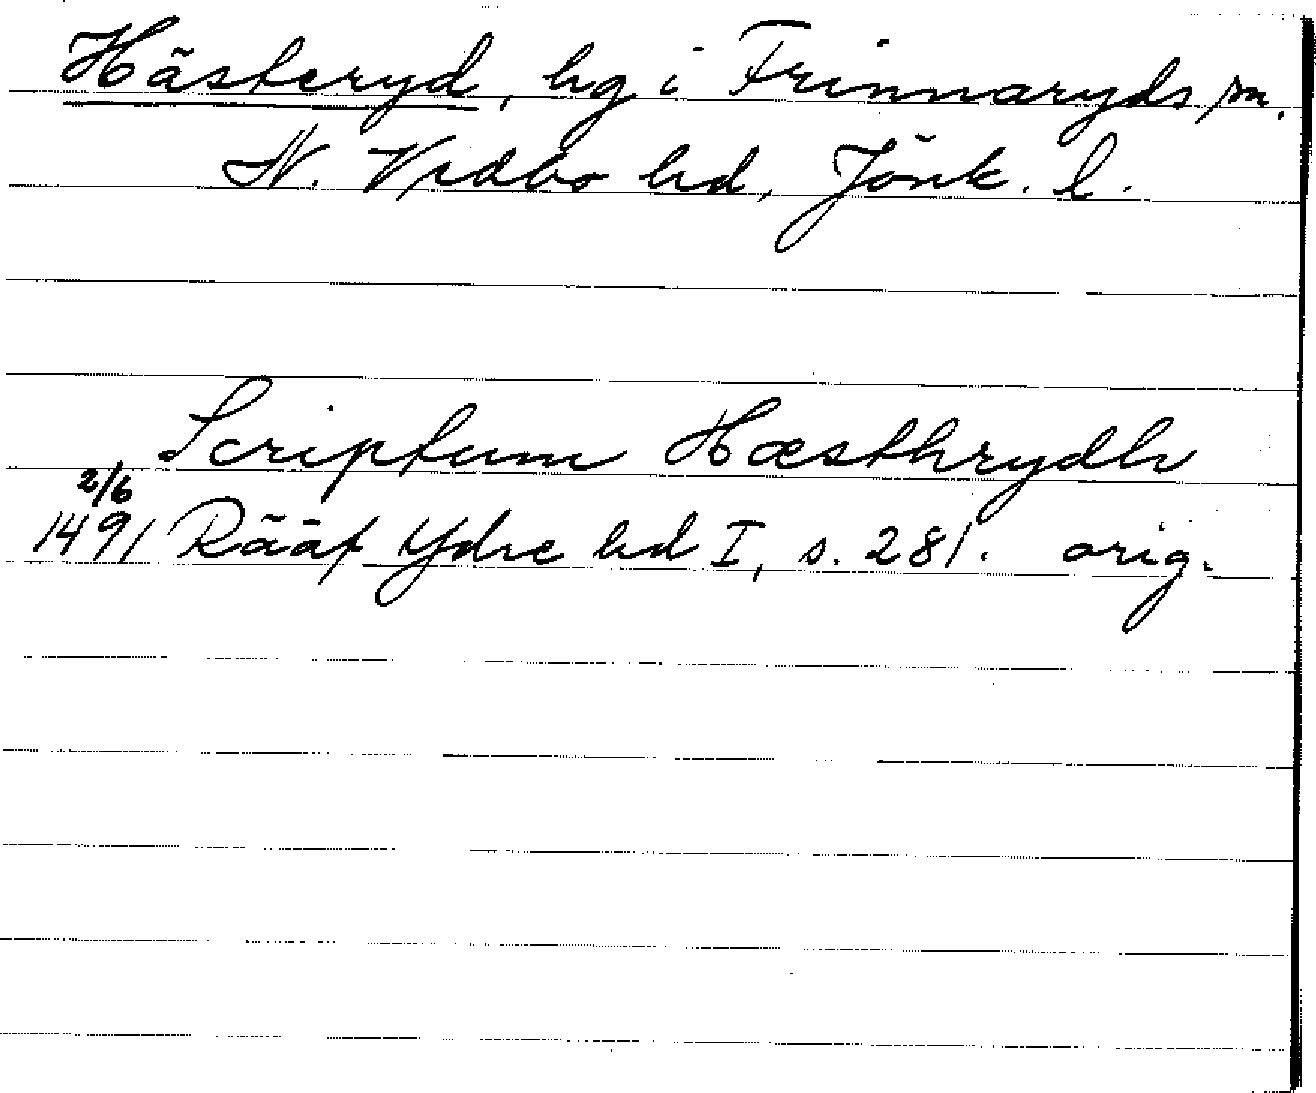 Hästeryd, hg i Frinnaryds sn.
N. Vedbo hd, Jönk. l.
Scriptum Hæsthrydh
2/6
1491 Rääf Ydre hd I, s. 281. orig.